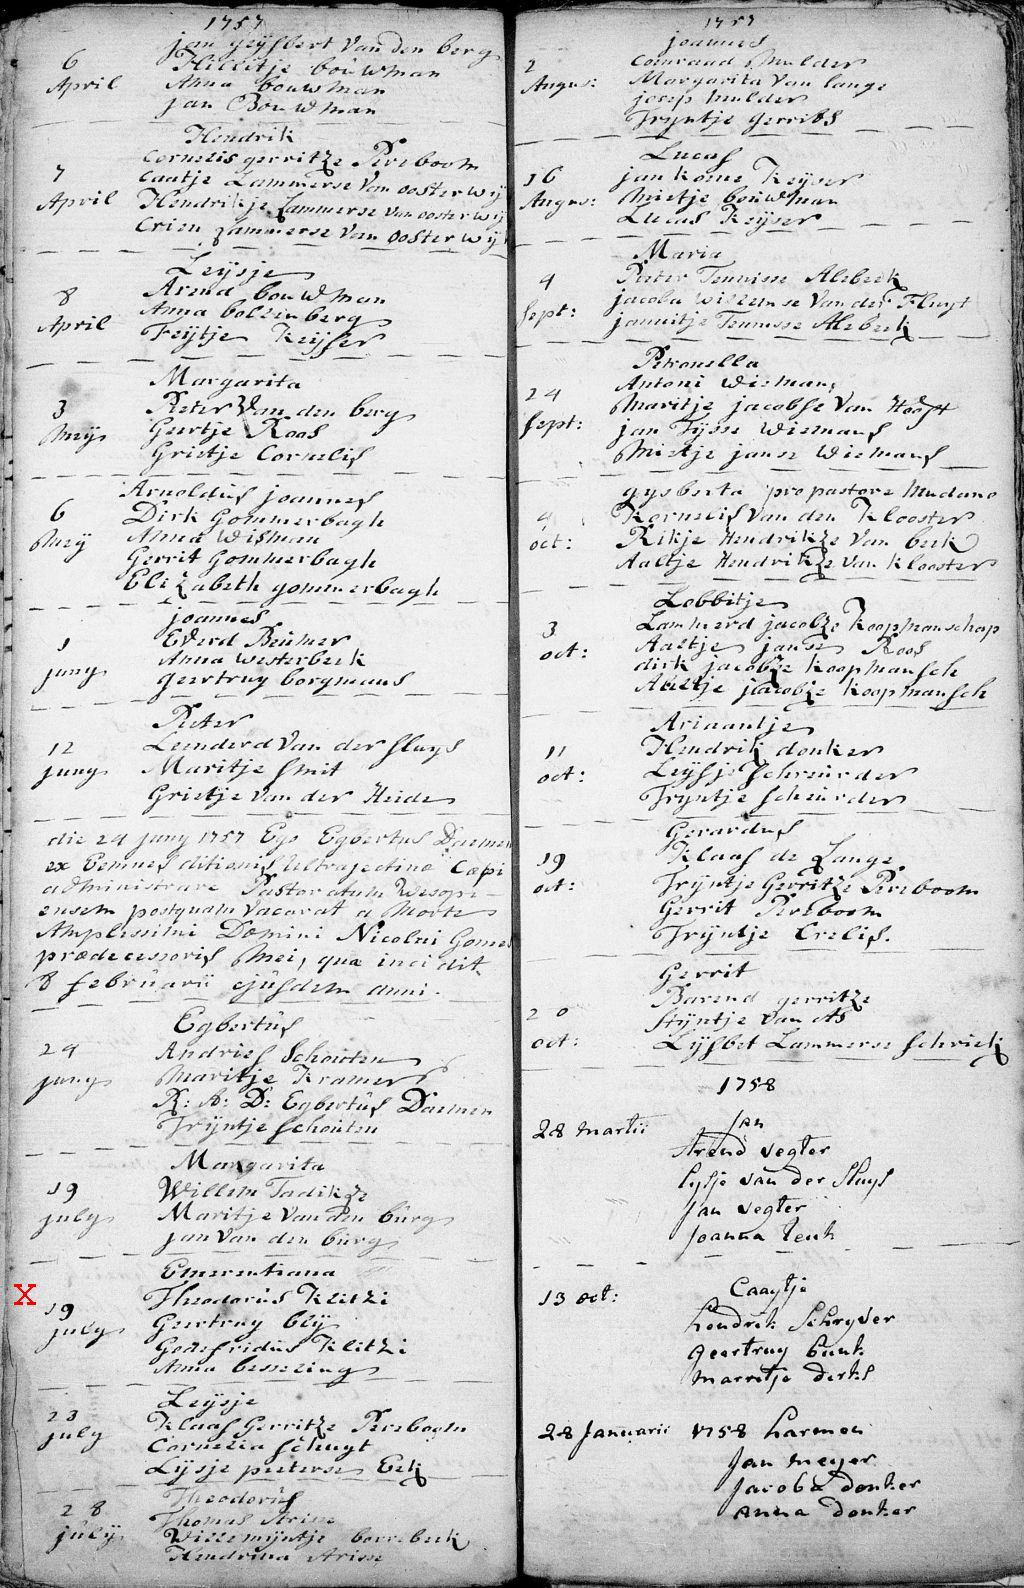 1757
jan Geijsbert Van den berg
6 Hillitje bouwman
April Anna bouwman
jan Bouwman
Hendrik
Cornelis gerritze Pereboom
7 Caatje Lammerse Van oosterwij
April Hendrikje Lammerse Van oosterwij
Crien Lammerse Van Oosterwijk
Leijsje
8 Arend bouwman
April Anna bolkenberg
Feijtje Keijser
Margarita
3 Pieter Van den berg
Meij Geertje Roos
Grietje Cornelis
Arnoldus joannes
6 Dirk Gommerbagh
Meij Anna Wisman
Gerrit Gommerbagh
Elizabeth gommerbagh
joannes
1 Everd Beumer
juny Anna Westerbeek
geertruy borgmans
Pieter
12 Leenderd Van der sluys
juny Maritje Smit
Grietje van der Heide
die 24 juny 1757 Ego Egbertus Daemen
ex Eemnes ditionis Ultrajectine Cœpi
administrare Pastoratum Wesop-
ensem postquam Vacarat a morte
Amplissimi Domini Nicolai Gomes
prædecessoris Mei, quæ incidit
8 februarii ejusdem anni.
Egbertus
24 Andries Schouten
juny Maritje Kramer
R: A: D: Egbertus Daemen
Tryntje schouten
Margarita
19 Willem Tadikze
july Maritje Van den burg
jan Van den burg
Emerentiana
X Theodorus Klitzi
19 Geertruy blij
july Godefridus Klitzi
Anna besseling
Leijsje
23 Klaas Gerritze Pereboom
july Cornelia schuyt
Lijsje pieterse Eek
Theodorus
28 Thomas Arisse
july Willemijntje borrebeek
Hendrina Arisse
1757
joannes
2 Coenraad Mulder
Augus: Margarita Van lange
josep mulder
Tryntje Gerrits
Lucas
16 jan kome Keijser
Augus: Mietje bouwman
Lucas Keijser
Maria
4 Pieter Teunisse Alebeek
sept: jacoba Willemse Van der Fluyt
jannitje Teunisse Alebeek
Petronella
24 Antoni Wieman
sept: Maritje jacobse Van Hooft
jan Tijsse Wiemans
Mietje janse Wiemans
gysberta pro pastore Mudano
4 Kornelis Van den Klooster
oct: Rikje Hendrikze Van beek
Aaltje Hendrikze Van Klooster
Lobbitje
3 Lammerd jacobze Koopmanschap
oct: Aaltje janse Roos
dirk jacobze Koopmansch
Aaltje jacobze Koopmansch
Ariaantje
11 Hendrik donker
oct: Leijsje Schreurder
Tryntje scheurder
Gerardus
19 Klaas de Lange
oct: Tryntje Gerritze Pereboom
Gerrit Pereboom
Tryntje Crelis.
Gerrit
20 Barend gerritze
Stijntje Van As
oct: Lijsbet Lammerse Schriek
1758
28 martii Jan
Arend Vegter
Lysje van der Sluys
Jan Vegter
Joanna
13 oct: Caaytje
Hendrik Schryver
geertruy bunk
marretje derks
28 Januarii 1758 harmen
Jan meyer
Jacoba donker
anna donker